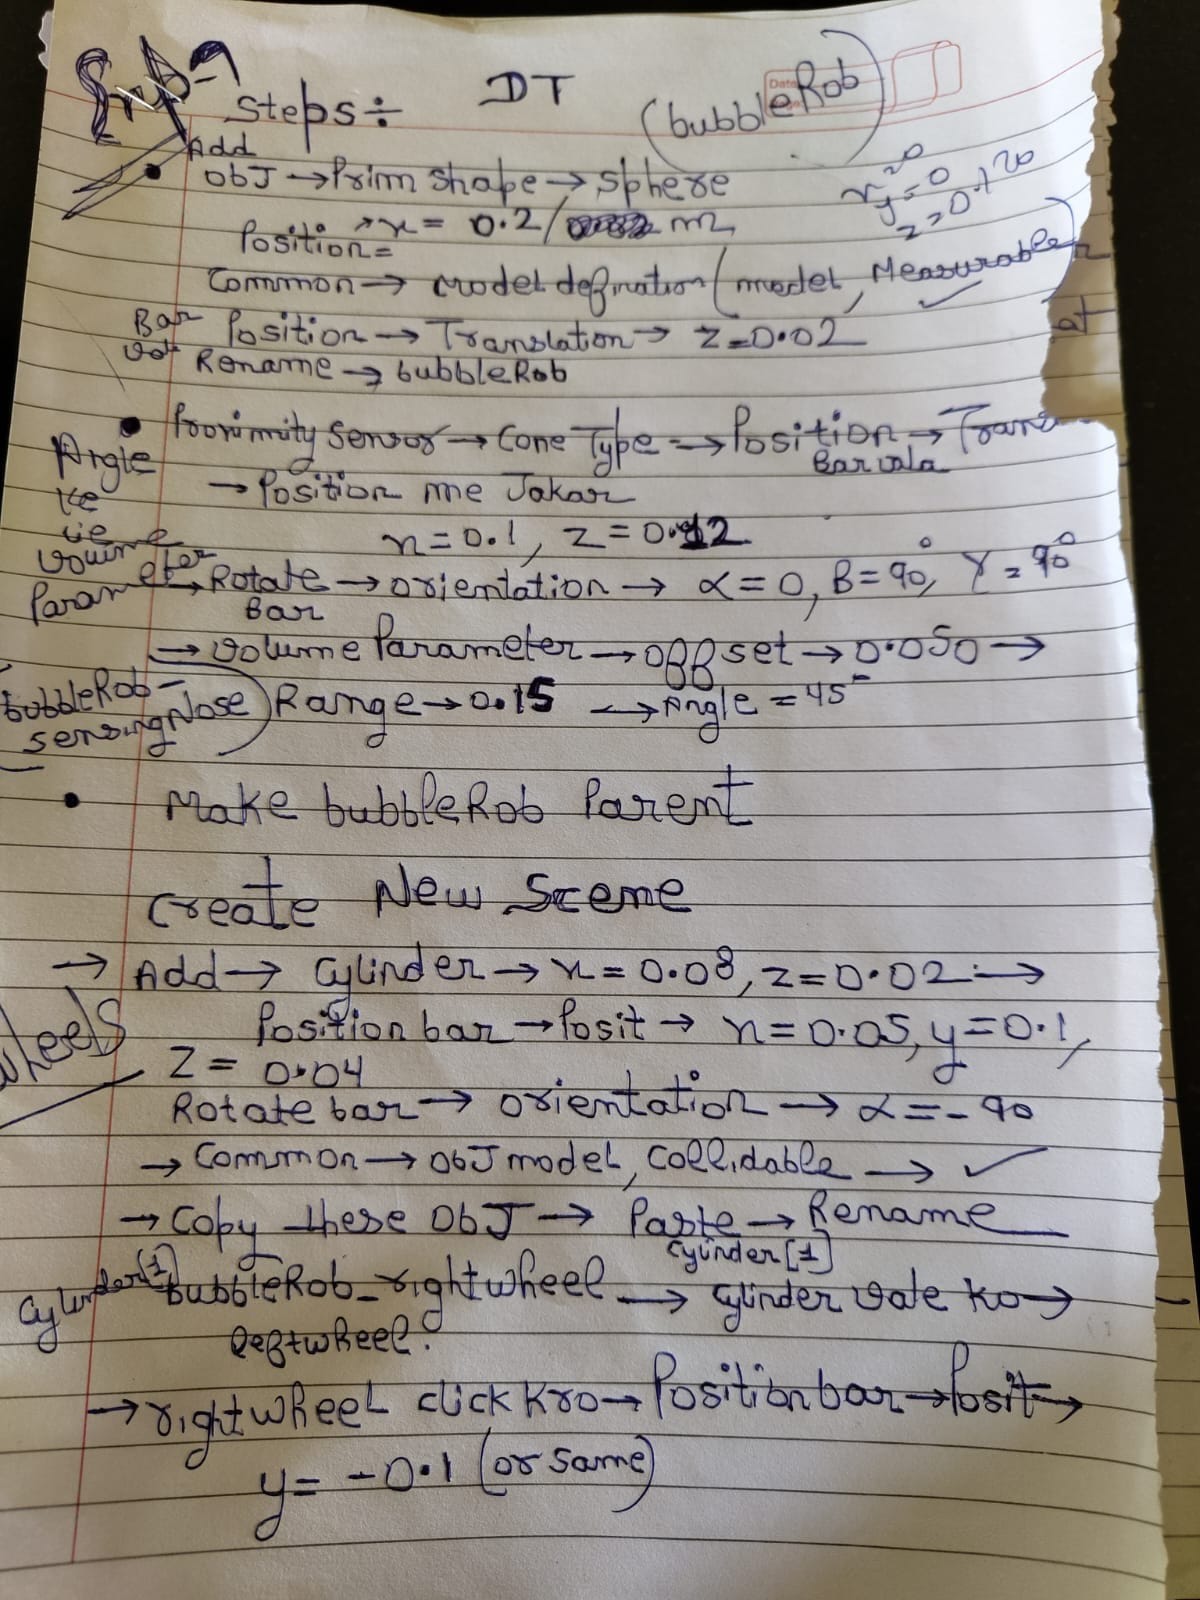 Exp-7
DT
(bubbleRob)
Steps ÷
Add
Obj → Prim shape → Sphere
x=0
y=0
z=0.120
Position = → x = 0.2/ m
Common → model defination (model, Measurable
Bar Position → Translation → z=0.02
Rename → bubbleRob
Proximity Sensor → Cone Type → Position → Trans
Bar vala
→ Position me Jakar
x=0.1, z=0.12
Angle
ke
lie
volume
Parameter
→ Rotate → orientation → α=0, β=90°, γ=90°
Bar
→ volume Parameter → offset → 0.050 →
bubbleRob-
sensingNose
Range → 0.15 → Angle = 45
• Make bubbleRob Parent
Create New Scene
→ Add → Cylinder → x=0.08, z=0.02 →
Wheels
Position bar → Posit → x=0.05, y=0.1,
z = 0.04
Rotate bar → orientation → α=-90°
→ Common → obJ model, Collidable → ✓
→ Copy these ObJ → Paste → Rename
Cylinder[1]
Cylinder[1] bubbleRob_rightwheel → Cylinder vale ko →
leftwheel.
→ rightwheel click kro → Position bar → Posit →
y= -0.1 (or same)